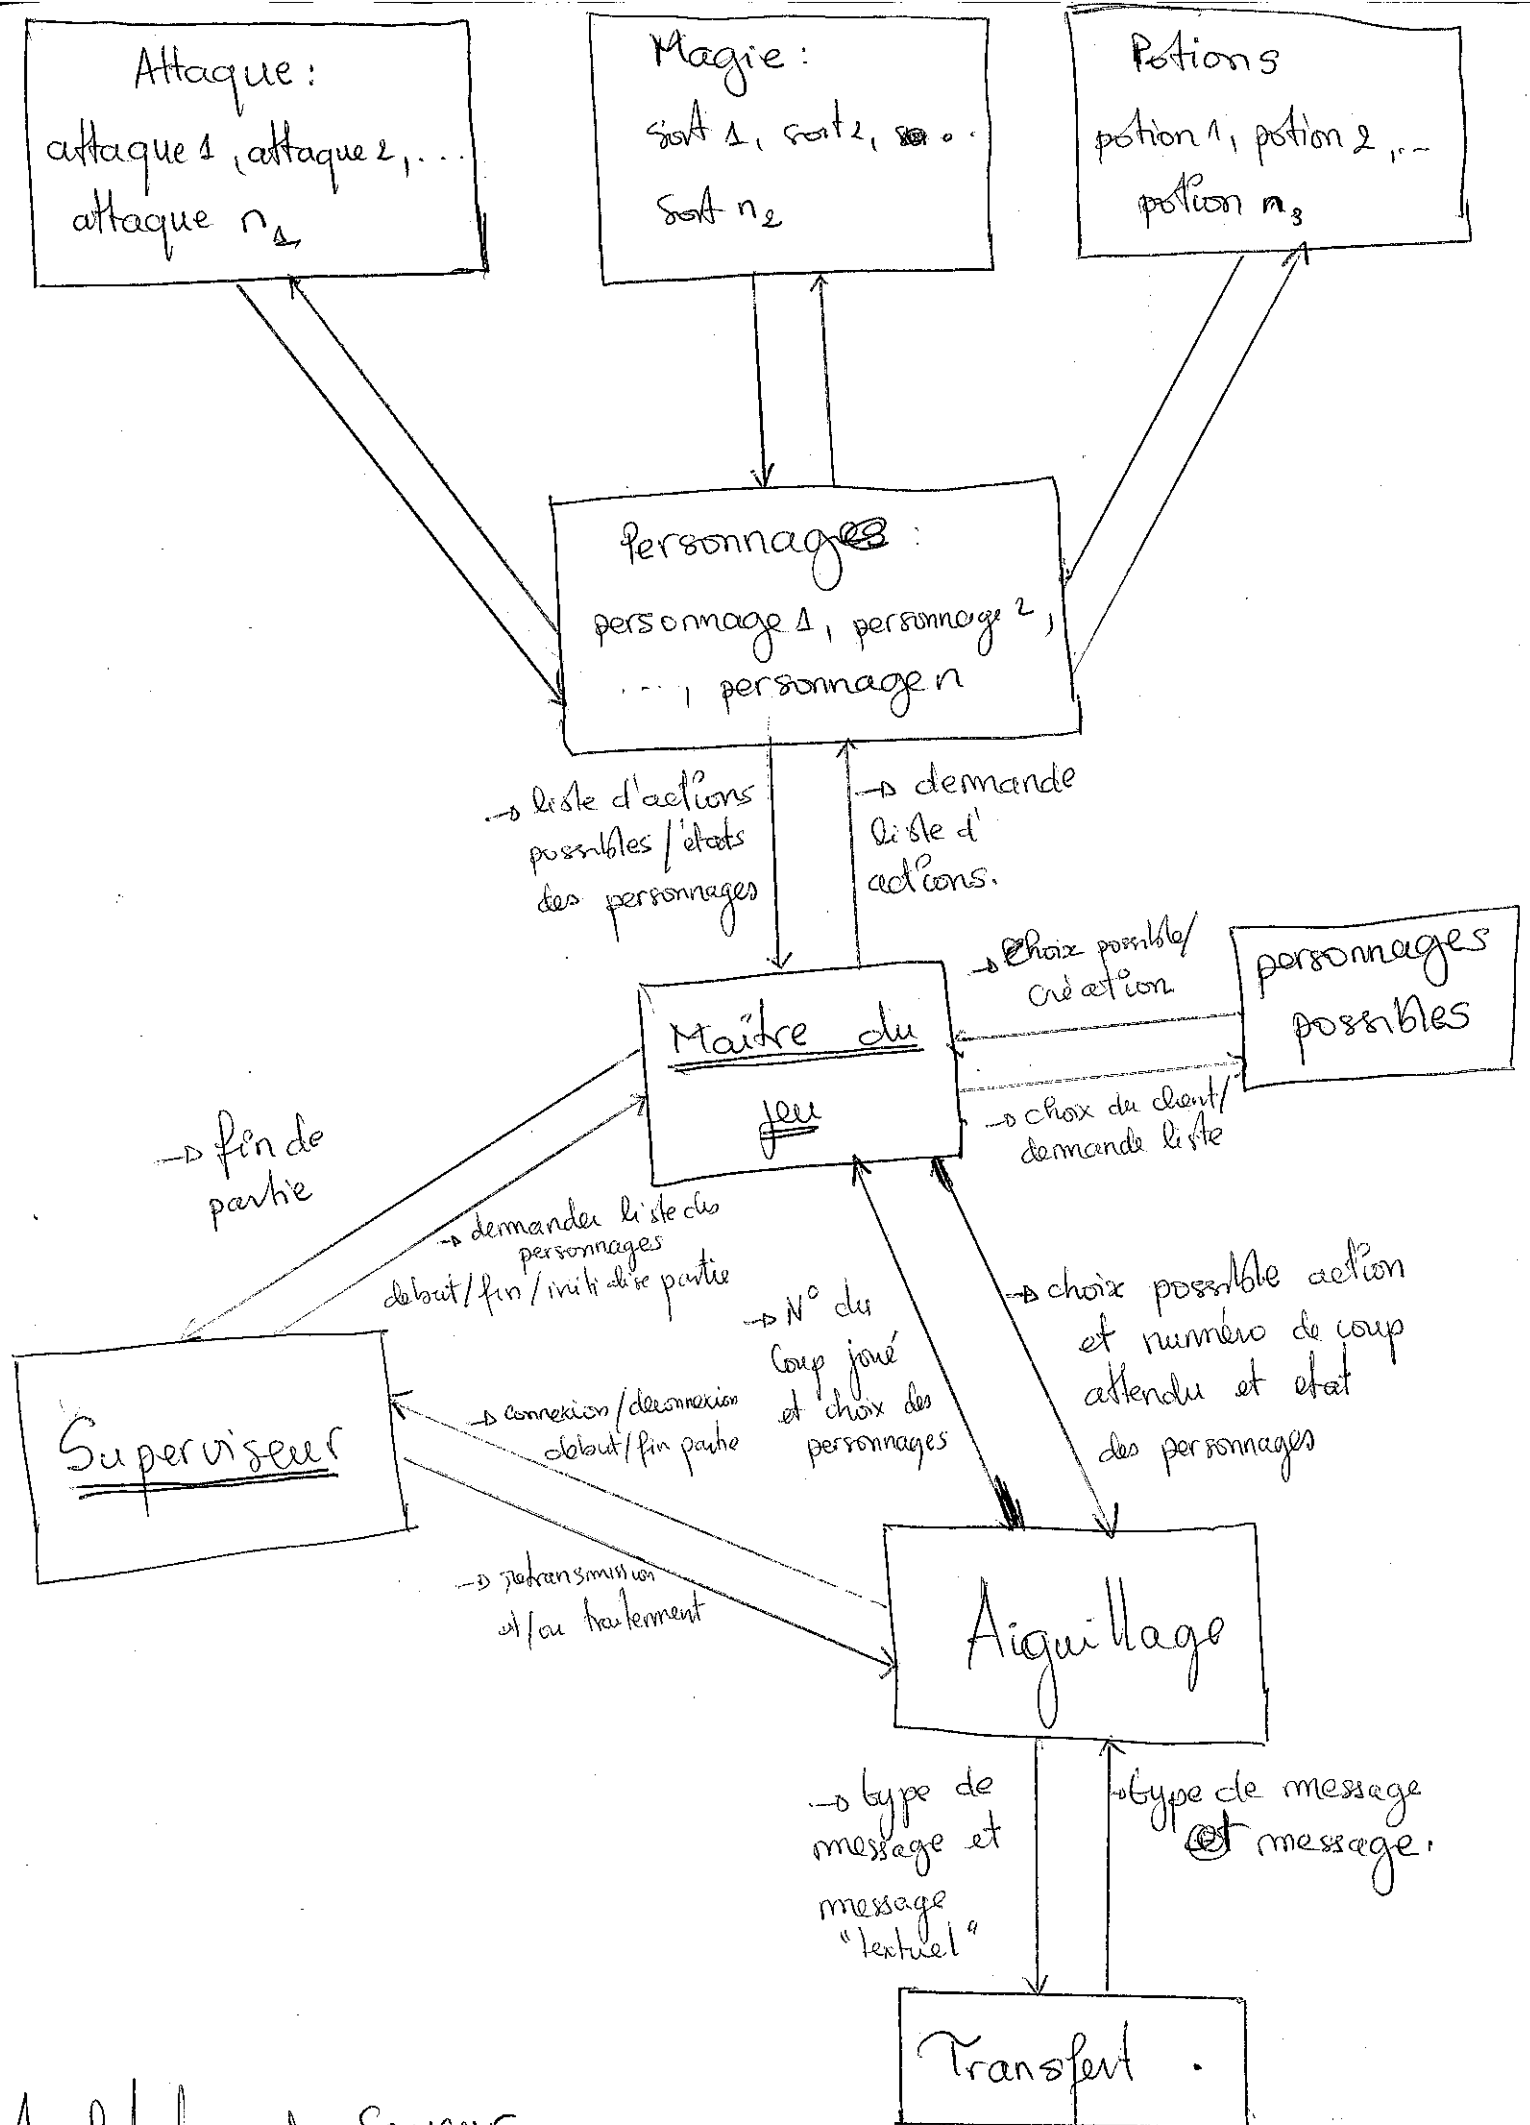 Attaque :
attaque 1, attaque 2, ...
attaque n1
Magie :
sort 1, sort 2, ...
sort n2
Potions
potion 1, potion 2, ...
potion n3
Personnages :
personnage 1, personnage 2,
..., personnage n
→ liste d'actions
possibles / états
des personnages
→ demande
liste d'
actions.
→ Choix possible/
création
personnages
possibles
Maître du
jeu
→ choix du client/
demande liste
→ fin de
partie
→ demander liste des
personnages
debut/fin/initialise partie
→ N° du
Coup joué
et choix des
personnages
→ choix possible action
et numéro de coup
attendu et etat
des personnages
Superviseur
→ connexion/deconnexion
debut/fin partie
→ retransmission
et/ou traitement
Aiguillage
→ type de
message et
message
"textuel"
→ type de message
et message.
Transfert.
Serveur